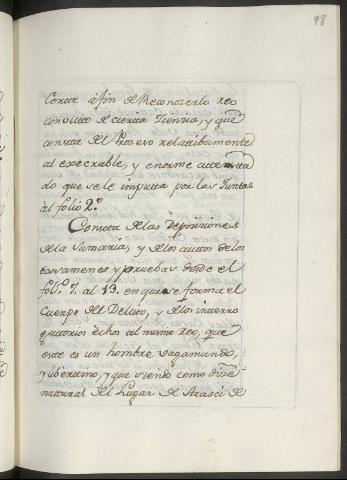 98
Corte á fin de Reconozerlo reo
convicto de cierta Ziencia, y que
consta del Proseso relatibamente
al execrable, y enorme attentta
do que se le imputta por las Juntas
al folio 2º
Consta de las deposiziones
de la Sumaria, y de los auttos de los
exsamenes y pruebas desde el
foli.º 7. al 13. en que se forma el
Cuerpo del Delito, y de los interro
gatorios echos al mismo reo, que
este es un hombre vagamundo,
y libertino, y que siendo como dize
natural del Lugar de Arasci de